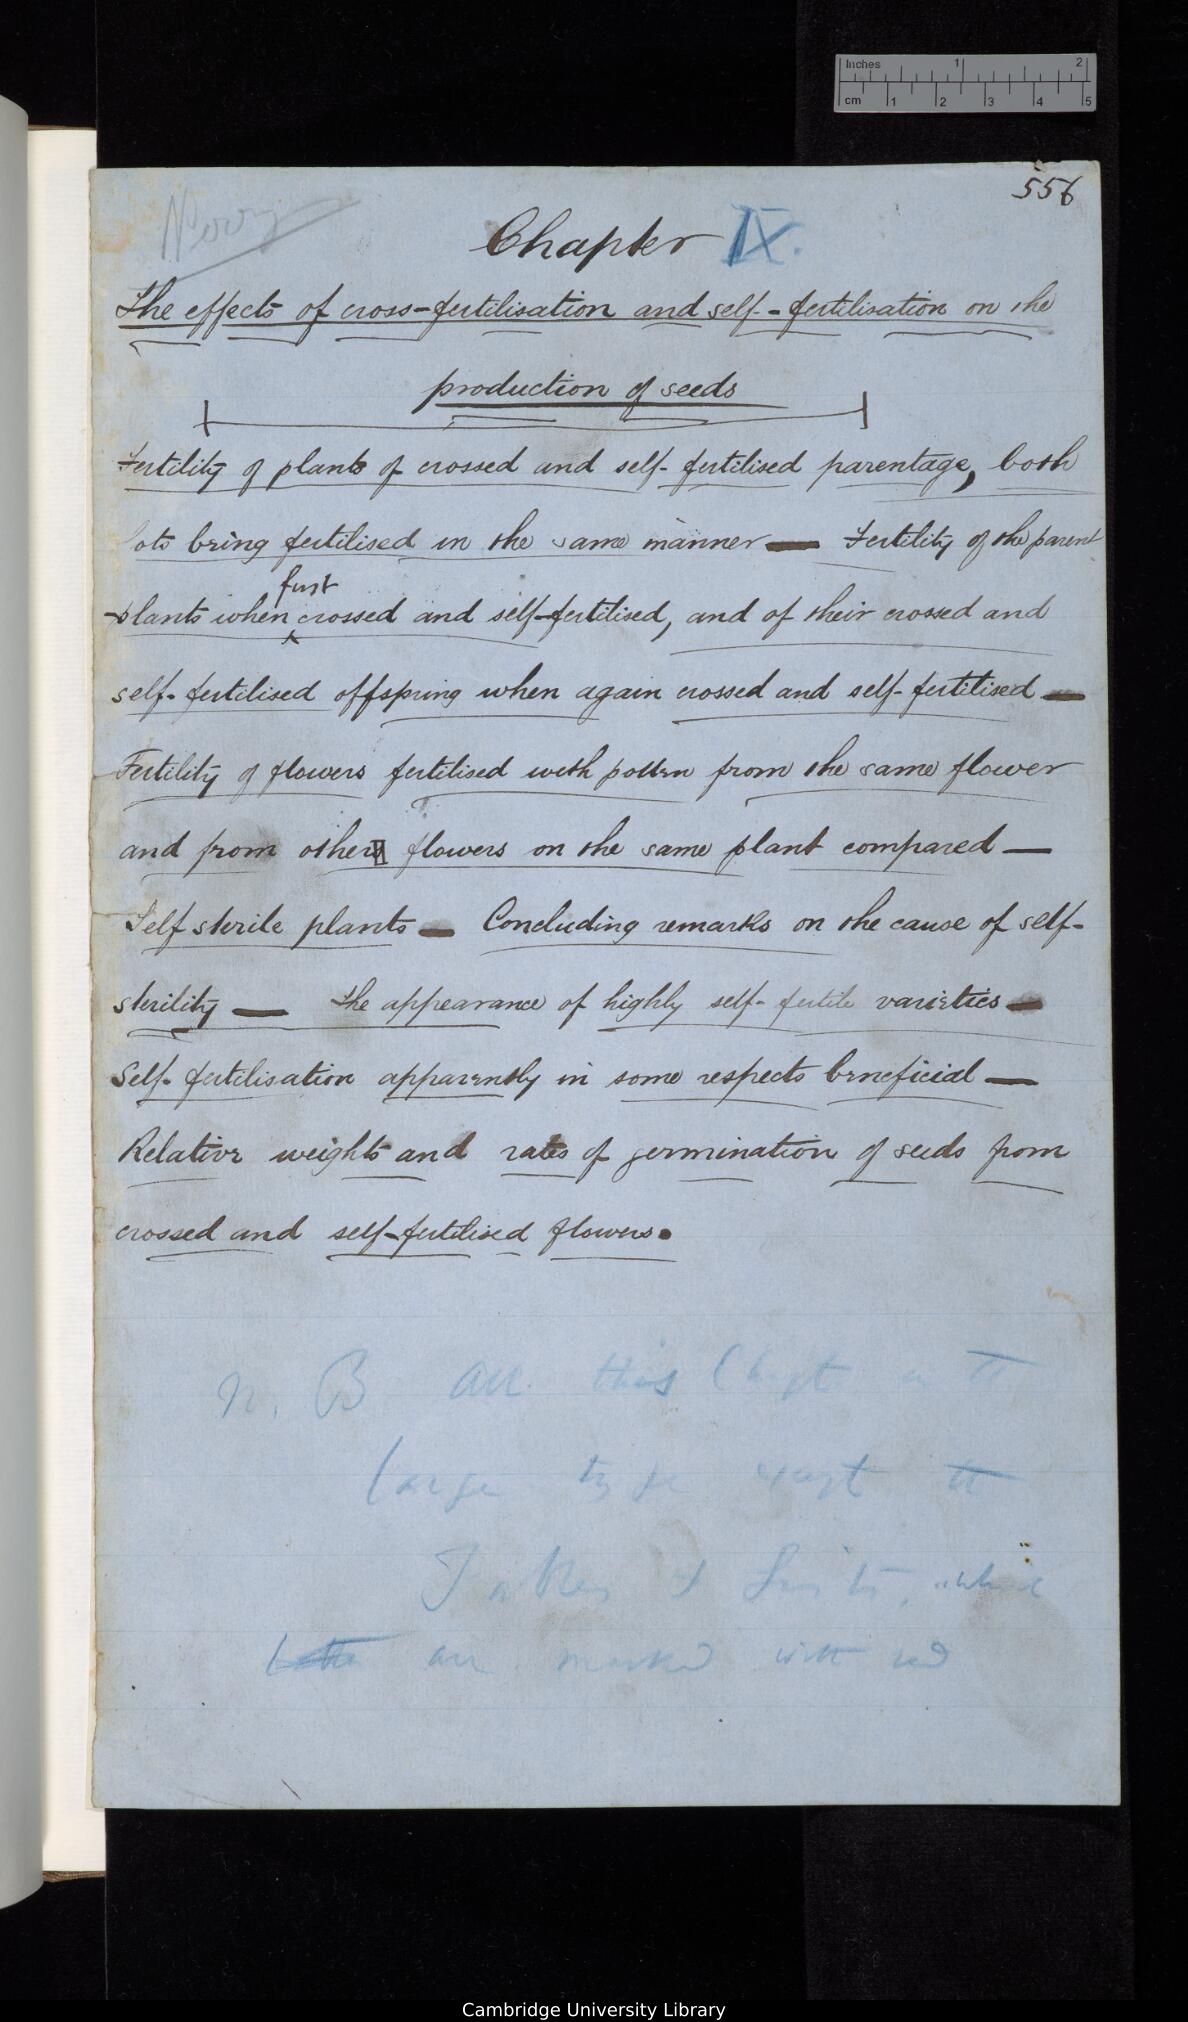 Inches 1 2
cm 1 2 3 4 5
556
Chapter IX.
The effects of cross-fertilisation and self-fertilisation on the
production of seeds
Fertility of plants of crossed and self-fertilised parentage, both
lots being fertilised in the same manner — Fertility of the parent
first
-plants when crossed and self-fertilised, and of their crossed and
self-fertilised offspring when again crossed and self-fertilised —
Fertility of flowers fertilised with pollen from the same flower
and from other flowers on the same plant compared —
Self sterile plants — Concluding remarks on the cause of self-
sterility — The appearance of highly self-fertile varieties —
Self-fertilisation apparently in some respects beneficial —
Relative weights and rates of germination of seeds from
crossed and self-fertilised flowers.
N. B All this Chapt in the
large type except the
Tables & Lists, which
are marked with red
Cambridge University Library